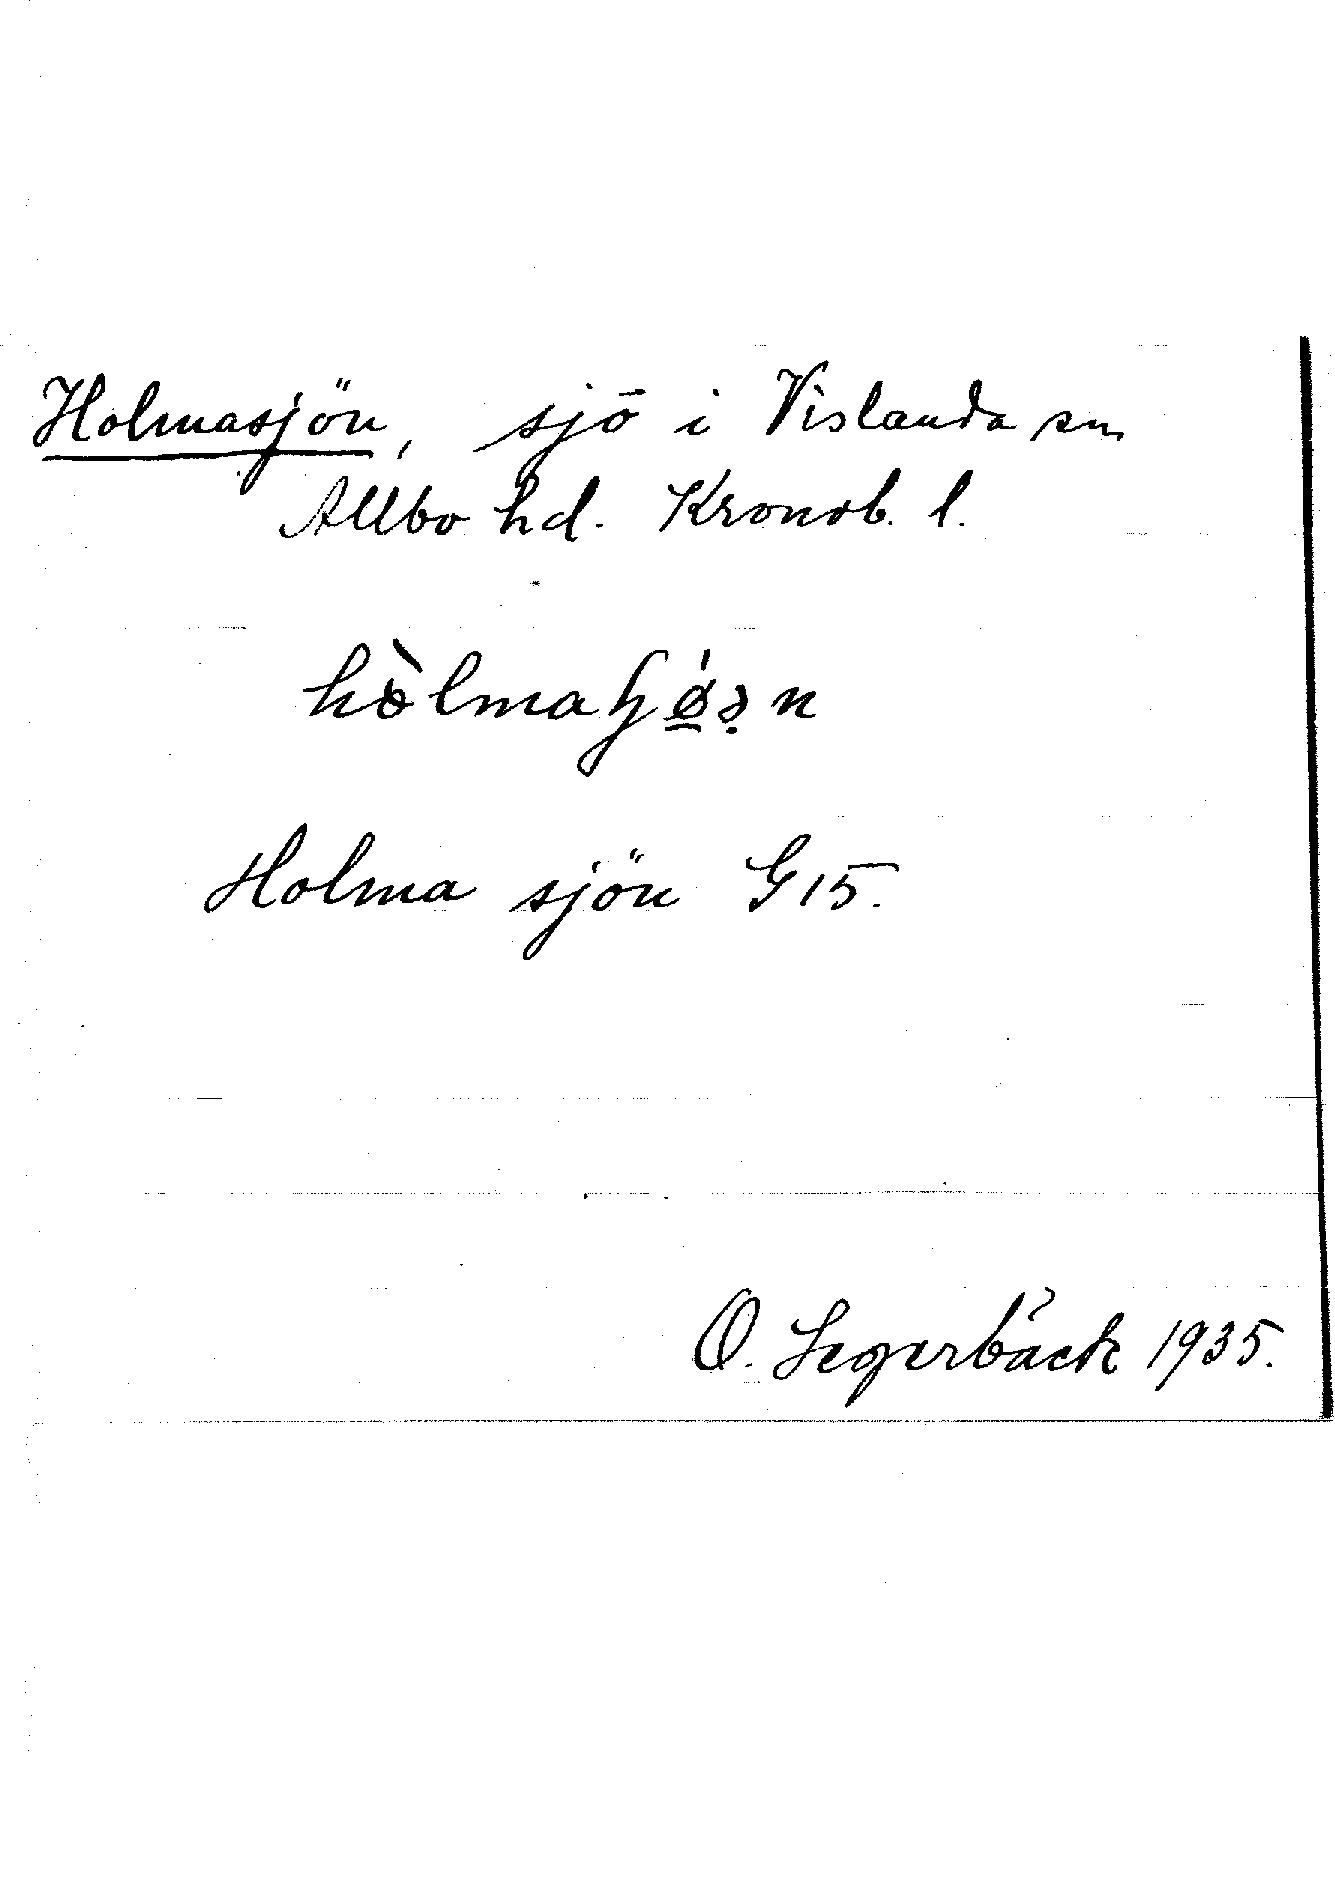 Holmasjön, sjö i Vislanda sn
Allbo hd. Kronob. l.
hòlmaɧǿ̲ə̣n
Holma sjön G15.
O. Segerbäck 1935.